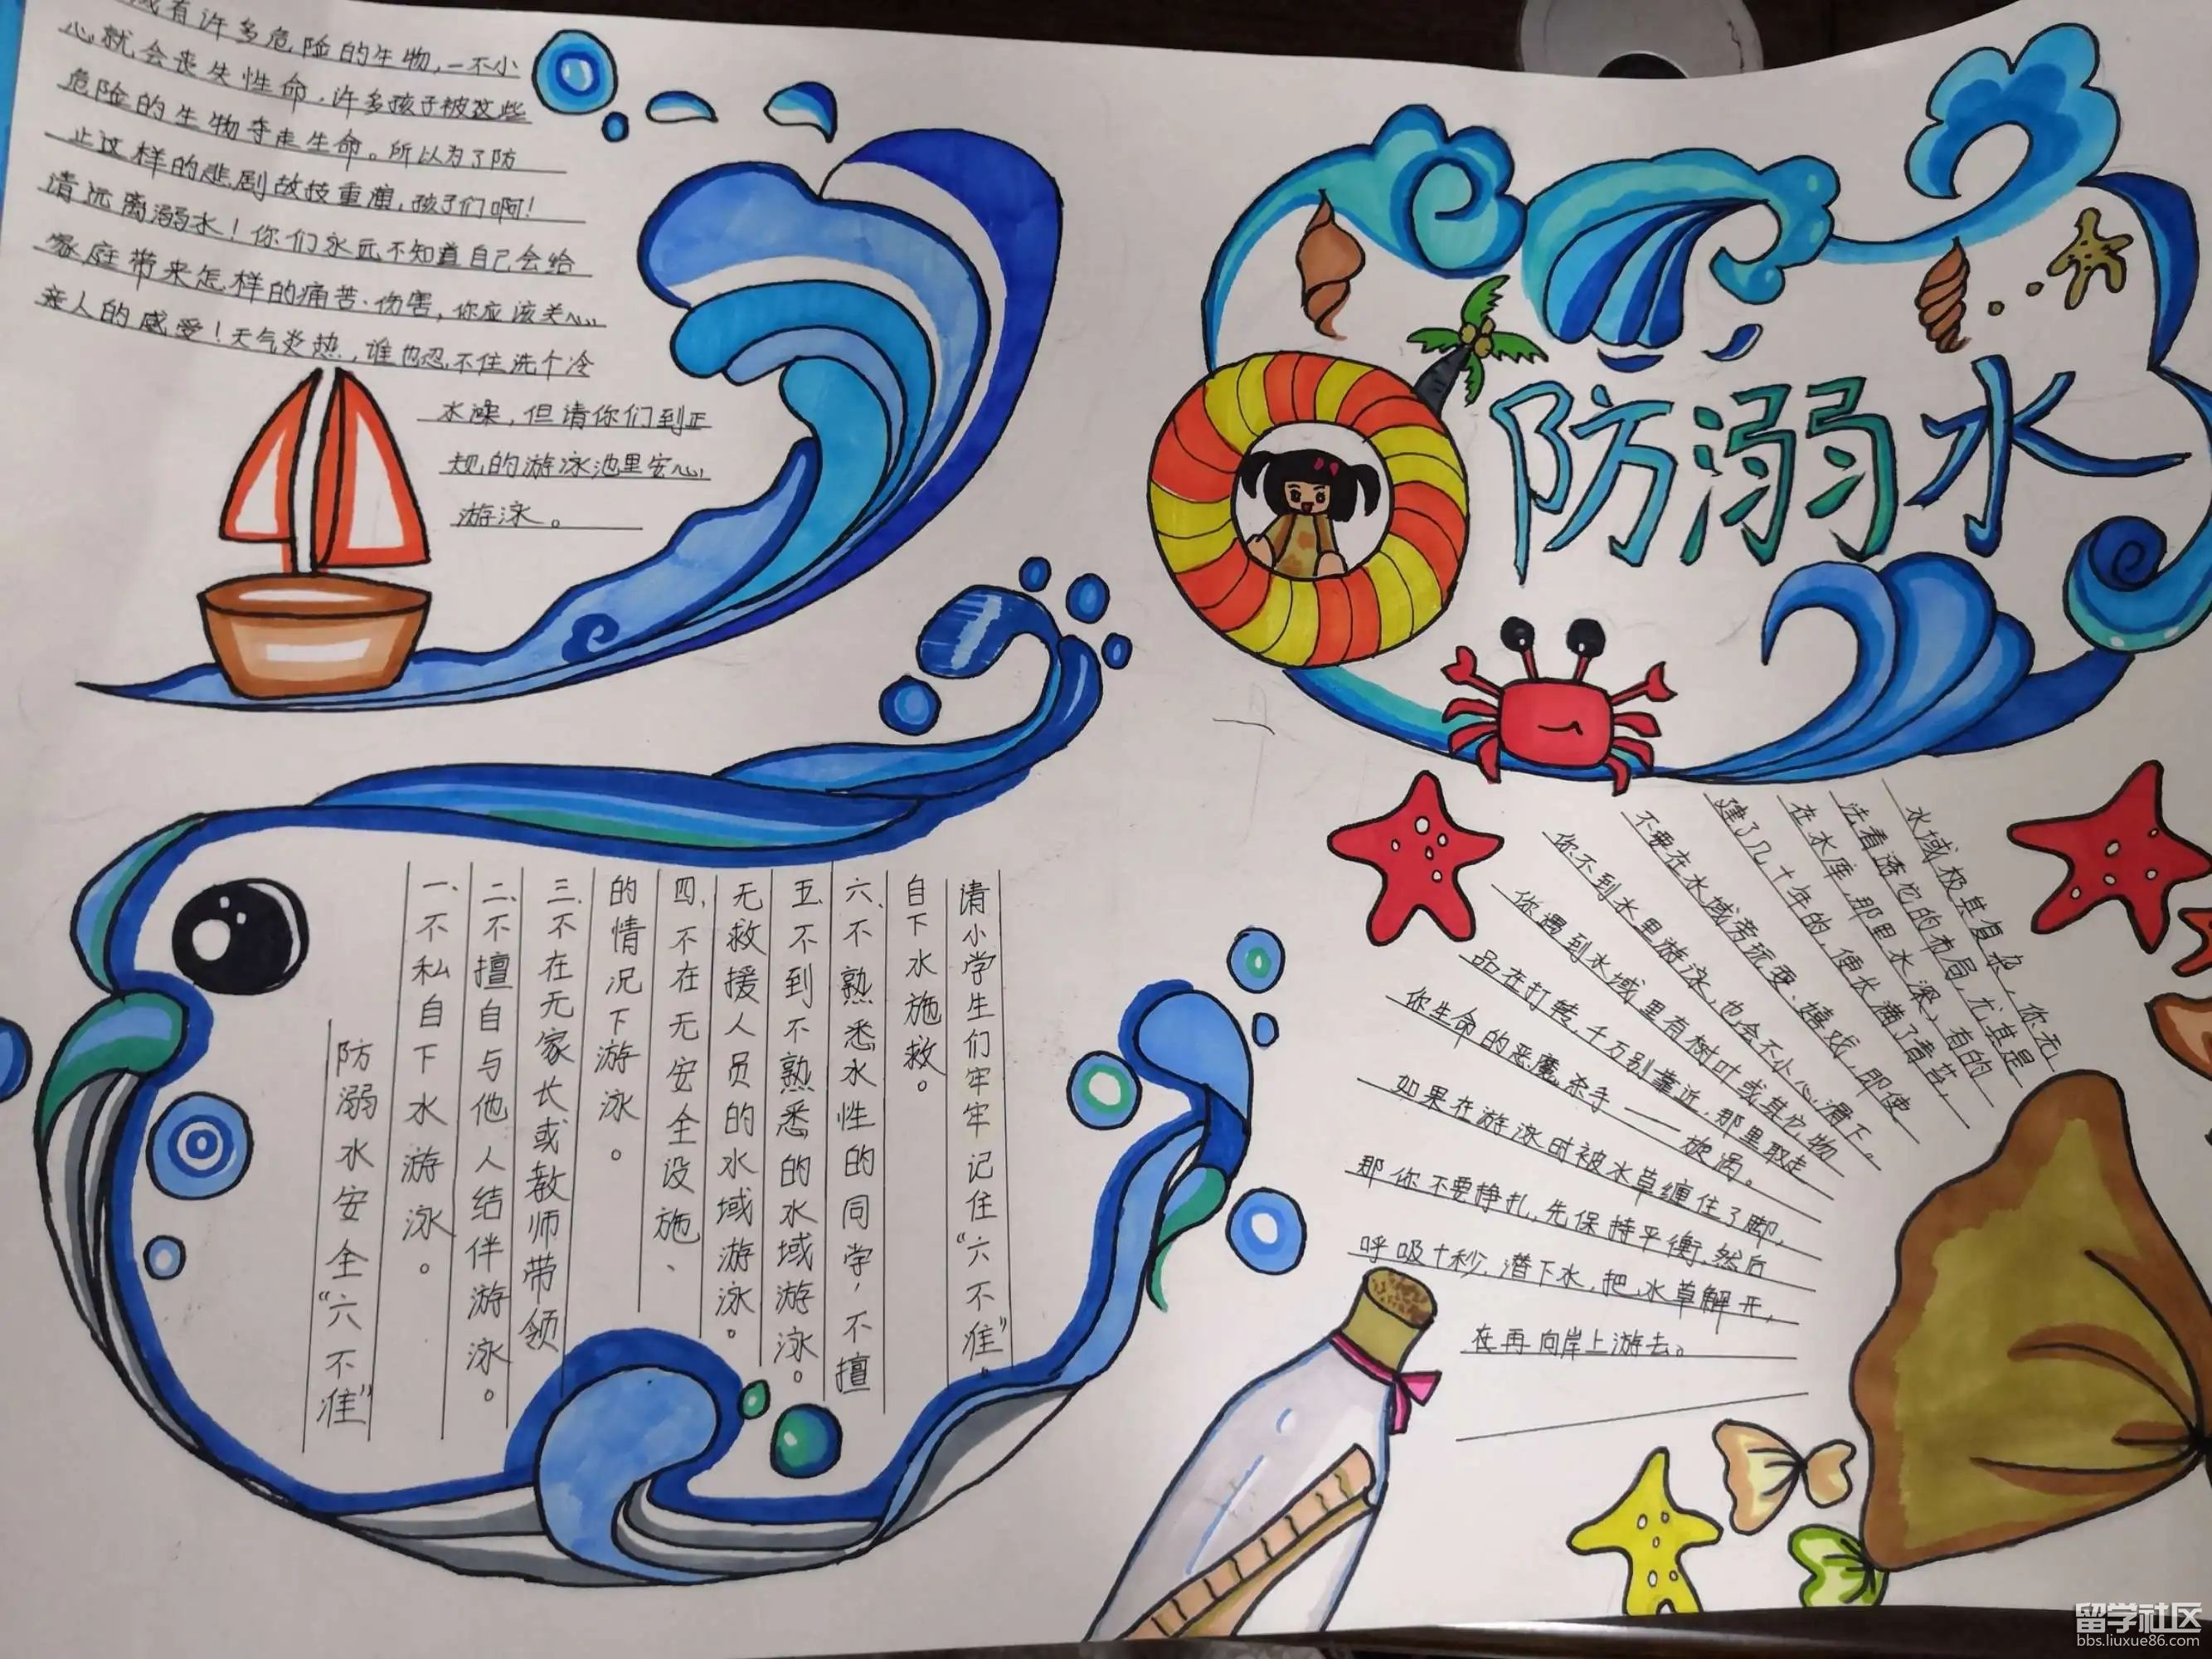 域有许多危险的生物,一不小
心就会丧失性命.许多孩子被这些
危险的生物夺走生命。所以为了防
止这样的悲剧故技重演,孩子们啊!
请远离溺水!你们永远不知道自己会给
家庭带来怎样的痛苦、伤害,你应该关心
亲人的感受!天气炎热,谁也忍不住洗个冷
水澡,但请你们到正
规的游泳池里安心
游泳。
防溺水
防溺水安全“六不准”
一、不私自下水游泳。
二、不擅自与他人结伴游泳。
三、不在无家长或教师带领
的情况下游泳。
四、不在无安全设施、
无救援人员的水域游泳。
五、不到不熟悉的水域游泳。
六、不熟悉水性的同学,不擅
自下水施救。
请小学生们牢牢记住“六不准”。
水域极其复杂,你无
法看透它的布局,尤其是
在水库,那里水深,有的
建了几十年的,便长满了青苔,
不要在水域旁玩耍、嬉戏,即使
你不到水里游泳,也会不小心滑下。
你遇到水域里有树叶或其它物
品在打转,千万别靠近,那里取走
你生命的恶魔杀手——旋涡。
如果在游泳时被水草缠住了脚,
那你不要挣扎,先保持平衡,然后
呼吸十秒,潜下水,把水草解开,
在再向岸上游去。
留学社区
bbs.liuxue86.com